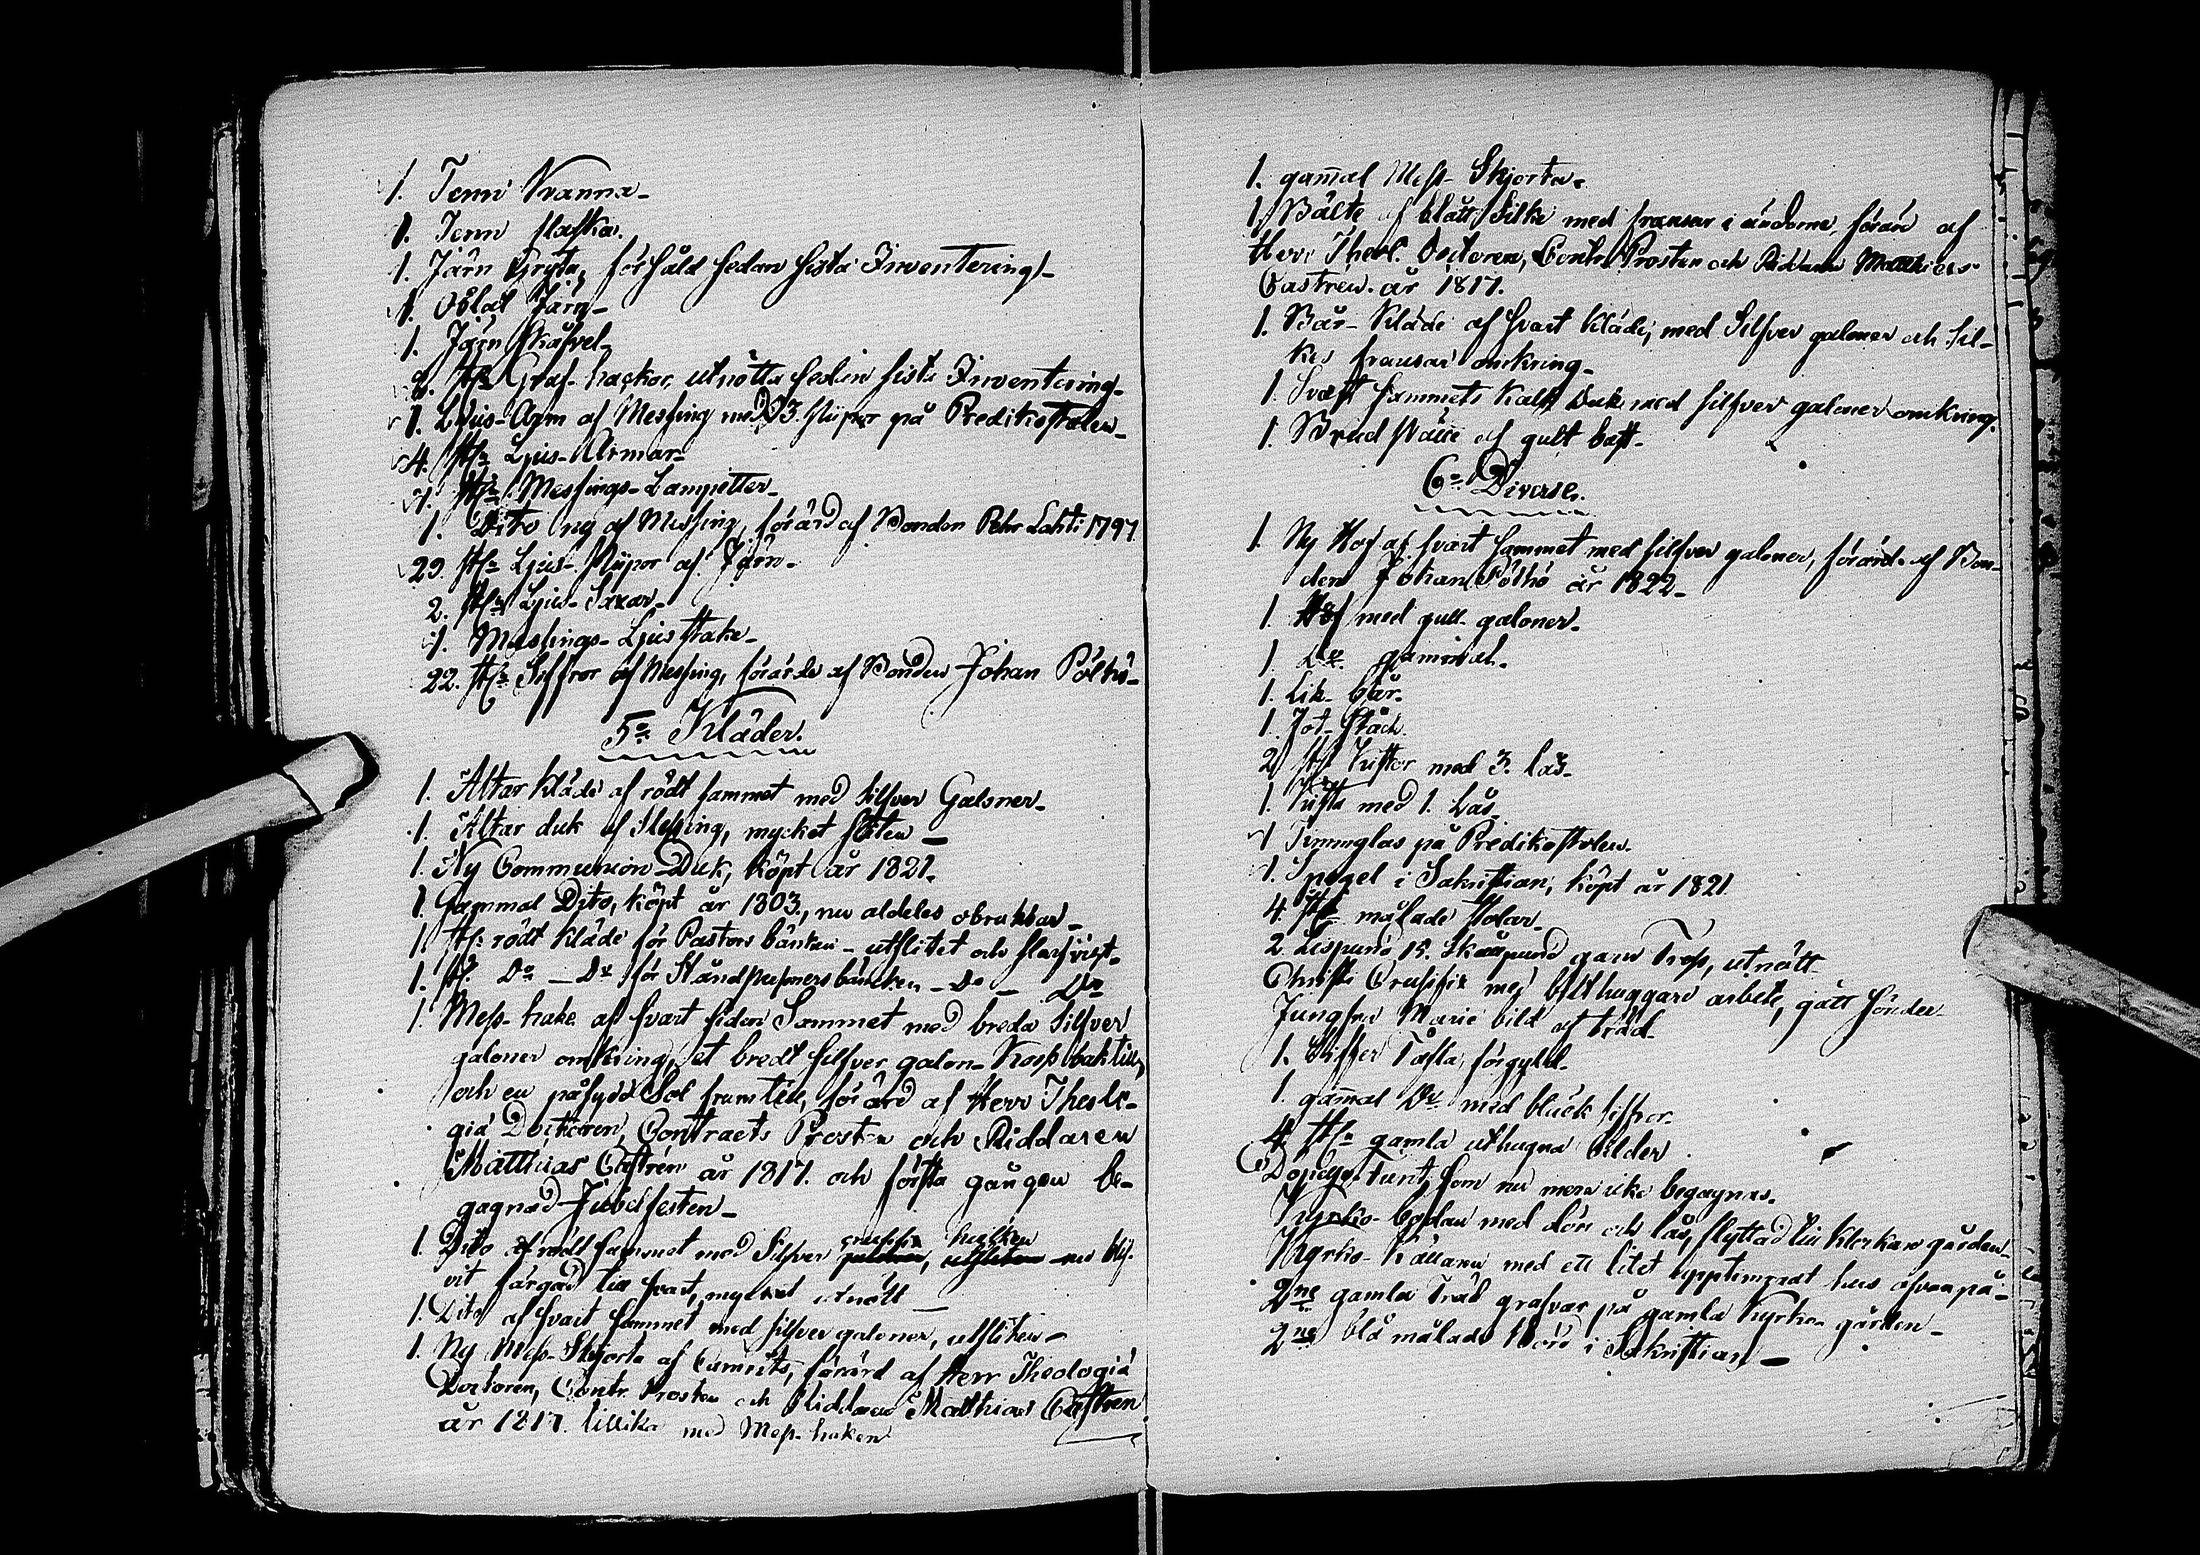 1. Tenn Kanna_
1. Tenn flaska.
1. Järn Gryta, försåld sedan sista Inventering_
1. Oblat Järn_
1. Järn Skåfvel_
2. st: Graf-hackor, utnötta sedan sista Inventering_
1. Ljus-Arm af Messing med 3. pipor på Predikstolen_
4. st: Ljus-Armar_
7. st: Messings-Lampetter_
1. Dito ny af Messing, förärd af Bonden Pehr Lahti 1797
29. st: Ljus-pipor af Järn_
2. st: Ljus-Saxar_
1. Messings-Ljusstake_
22. st: Siffror af Messing, förärde af Bonden Johan Pöllö_
5o Kläder.
1. Altar kläde af rödt sammet med silfver Galoner_
1. Altar duk af, mycket sliten_
1. Ny Communion Duk, köpt år 1821.
1. Gammal Dito, köpt år 1803., nu aldeles obrukbar_
1 st: rödt kläde för Pastors bänken_ utslitet och
1. st. Do _ Do för Ståndspersoners bänken _ Do _ Do
1. Mess-hake af svart siden Sammet med breda silfver
galoner omkring, et bredt silfver galon-Kors baktill,
och en påsydd Sol framtill, förärd af Herr Theolo-
giæ Doctoren, Contracts Prosten och Riddaren
Matthias Castrén år 1817. och första gången be-
gagnad Jubelfesten_
1. Dito af rödt sammet med Silfver crucifix, hvilken nu bli-
vit färgad till svart, mycket utnött_
1. Dito af svart sammet med silfver galoner, utsliten_
1. Ny Mess-Skjorta af, förärd af Herr Theologiæ
Doctoren, Contr. Prosten och Riddaren Matthias Castren
år 1817. tillika med Mess-haken
1. gamal Mess-Skjorta.
1 Bälte af blått Silke med fransar i ändorne, förärd af
Herr Theol. Doctoren, Contr. Prosten och Riddaren Matthias
Castren. år 1817.
1. Bår-Kläde af svart kläde, med Silfver galoner och sil-
kes fransar omkring_
1. Svart Sammets Kalk Duk med silfver galoner omkring.
1. Brud af gult taft_
6o Diverse.
1. Ny Hof af svart sammet med silfver galoner, förärd af Bon-
den Johan Pöllö år 1822_
1 Hof med gull galoner_
1 Do gammal_
1. Lik-bår_
1.
2 st kistor med 3. lås_
1 kista med 1. Lås_
1 Timmglas på Predikostolen.
1. Spegel i Sakristian, köpt år 1821
4. st målade stolar_
2 Lispund 15. Skålpund garn, utnött
Christi Crusifix med bilthuggare arbete, gått sönder_
Jungfru Mariæ bild af träd_
1. Siffer Tafla, förgyld_
1. gamal Do med bläck siffror.
4. st: gamla uthugna bilder
, som nu mera icke begagnas.
Kyrko-bodan med dörr och lås, flyttad till Klockare gården_
Kyrko-Källaren med ett litet upptimrat hus ofvanpå_
2ne gamla Träd grafvar på gamla Kyrko gården_
2ne blå målade Bord i Sakristian_